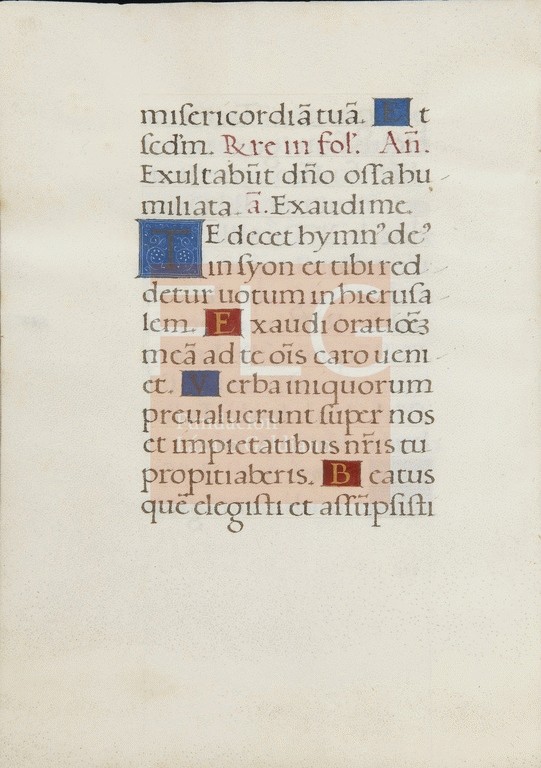 misericordiã tuã. Et
scďm. R̃re in fol'. Añ.
Exultabũt dño ossa hu
miliata. ã. Exaudi me.
TE decet hymn᾽ de᾽
in syon et tibi red
detur uotum in hierusa
lem. Exaudi oratiõeʒ
meã ad te oĩs caro ueni
et. Verba iniquorum
preualuerunt super nos
et impietatibus nr̃is tu
propitiaberis. Beatus
quẽ elegisti et assũpsisti
FLG
Fundación